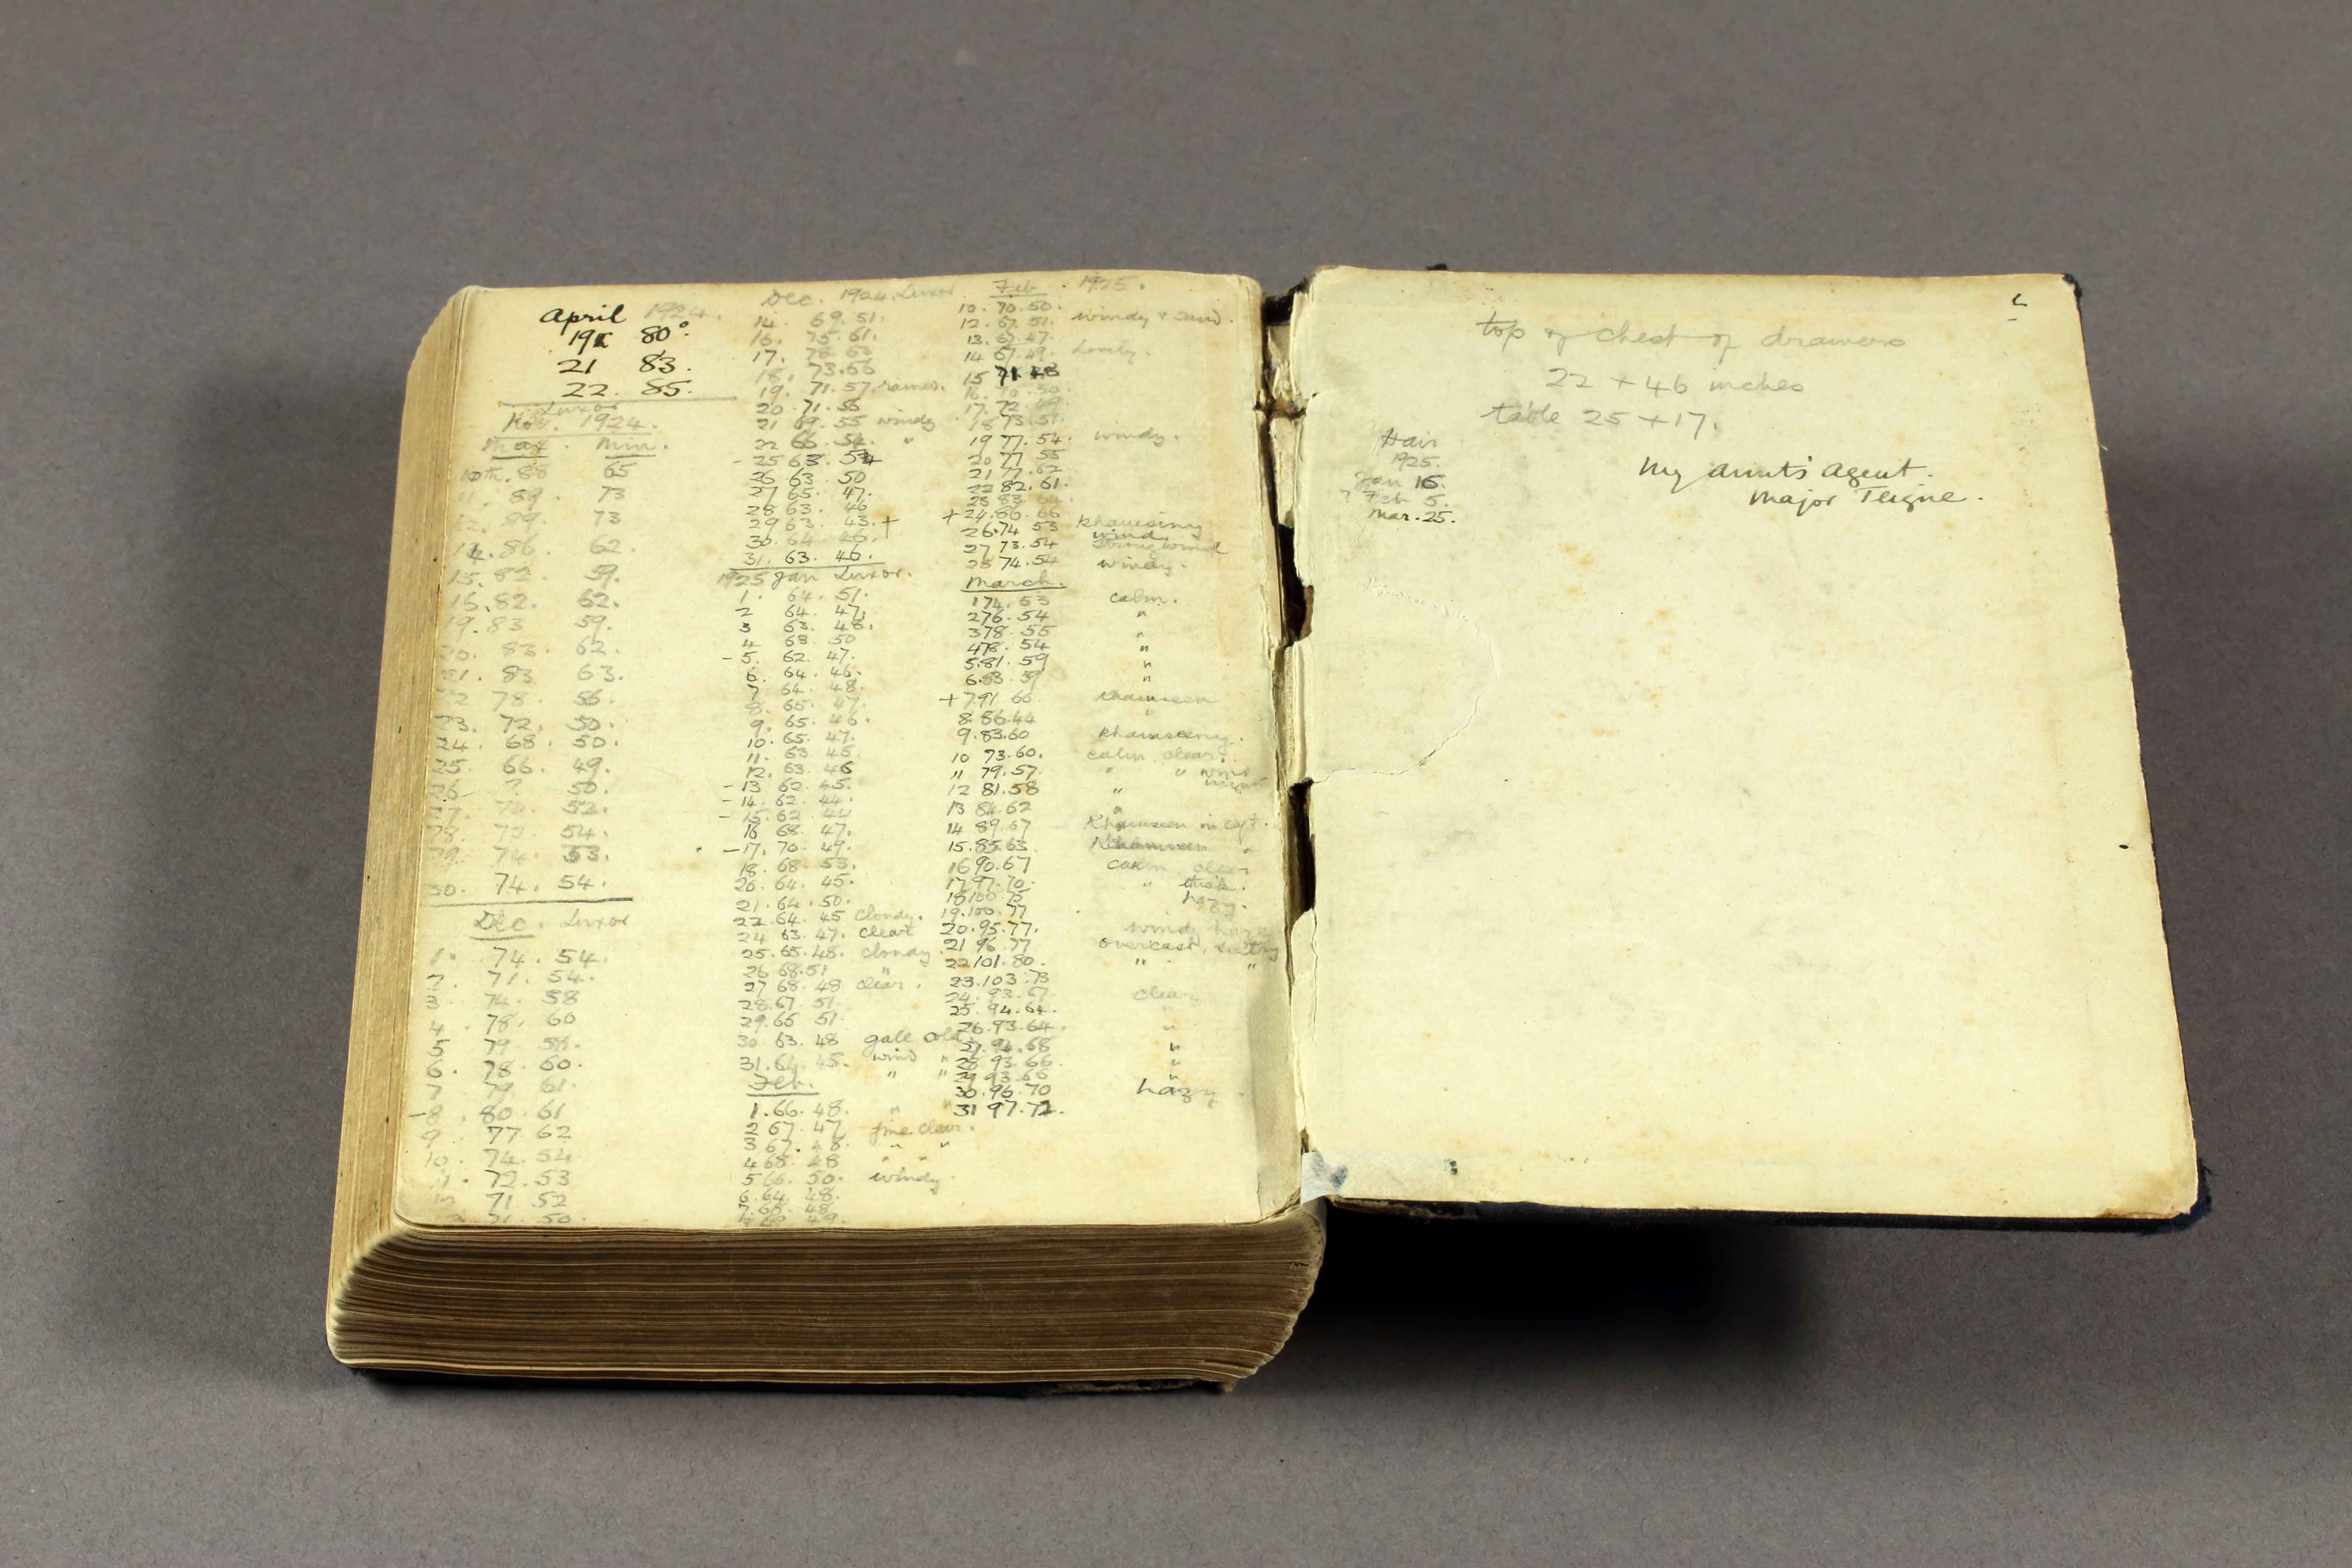 April 1924.
19 80°.
21 83.
22. 85.
Luxor
Nov. 1924.
Max. Min.
10th. 88 65
11. 89. 73
12. 89. 73
14. 86. 62.
15. 82. 59.
16. 82. 62.
19. 83 59.
20. 83. 62.
21. 83 63.
22 78. 56.
23. 72. 50.
24. 68. 50.
25. 66. 49.
26 ? 50.
52.
28. 72. 54.
29. 74. 53.
30. 74. 54.
Dec. Luxor
1. 74. 54.
2. 71. 54.
3. 74. 58
4. 78. 60
5 79. 58.
6. 78. 60.
7 79. 61.
-8. 80. 61
9. 77 62
10. 74. 54
11. 72. 53
12 71 52
71. 50.
Dec. 1924. Luxor
14. 69. 51.
16. 75. 61.
17. 78
18. 73. 66
19. 71. 57. rained.
20. 71. 56
21 69. 55 windy
22 66. 54. "
- 25 63. 54
26 63. 50
27 65. 47.
28 63. 46
29 63. 43. +
30. 64.
31. 63. 46.
1925 Jan Luxor.
1. 64. 51.
2 64. 47.
3 63. 48.
4 63. 50
- 5. 62. 47.
6. 64. 46.
7 64. 48.
8. 65. 47.
9. 65. 46.
10. 65. 47.
11. 63 45.
12. 63. 46
- 13 62. 45.
- 14. 62. 44.
- 15. 62 44
16 68. 47.
- 17. 70. 49.
18. 68. 53.
20. 64. 45.
21. 64. 50.
22. 64. 45 cloudy.
24 63. 47. clear
25. 65. 48. cloudy
26 68. 51 "
27 68. 48 clear.
28. 67. 51.
29. 65 51.
30 63. 48 gale cold
31. 64. 45. wind "
" "
Feb.
1. 66. 48. " "
2 67. 47 fine clear.
3 67. 48. " "
4 68. 48 " "
5 66. 50. windy.
6. 64. 48.
7. 68. 48
49.
Feb. 1925.
10. 70. 50.
12. 67. 51. windy & sand.
13. 67. 47.
14 67. 49. lovely.
15 71 48
16.
17. 72. 49.
18 73. 51.
19 77. 54. windy.
20 77 55
21 77. 62
22 82. 61.
23 83
+ 24. 86. 66
26. 74 53 wind.
27 73. 54 strong wind
28 74. 54 windy.
March.
1 74. 53 calm.
2 76. 54 "
3 78. 55 "
4 78. 54 "
5. 81. 59 "
6. 83. 59 "
+ 7. 91 66 khamseen
8. 86. 44 "
9. 83. 60 khamseeny.
10 73. 60. calm clear.
11 79. 57. " " wind
12 81. 58 "
13 84. 62 "
14 89. 67 Khamseen in aft.
15. 85. 63 Khamseen "
16 90. 67 calm clear
17 97. 70. " thick.
18 100. 75 hazy.
19. 100. 77
20. 95. 77. wind, haze
21 96. 77 overcast, sultry
22 101. 80. " "
23. 103. 73
24. 93. 67. clear
25. 94. 64. "
26. 93. 64. "
27. 94. 68 "
28 93. 66 "
29 93. 66 "
30. 96. 70 hazy.
31 97. 72.
top of chest of drawers
22 + 46 inches
table 25 + 17.
Hair
1925.
Jan 16.
? Feb 5.
Mar. 25.
My aunt's agent.
Major Teigne.